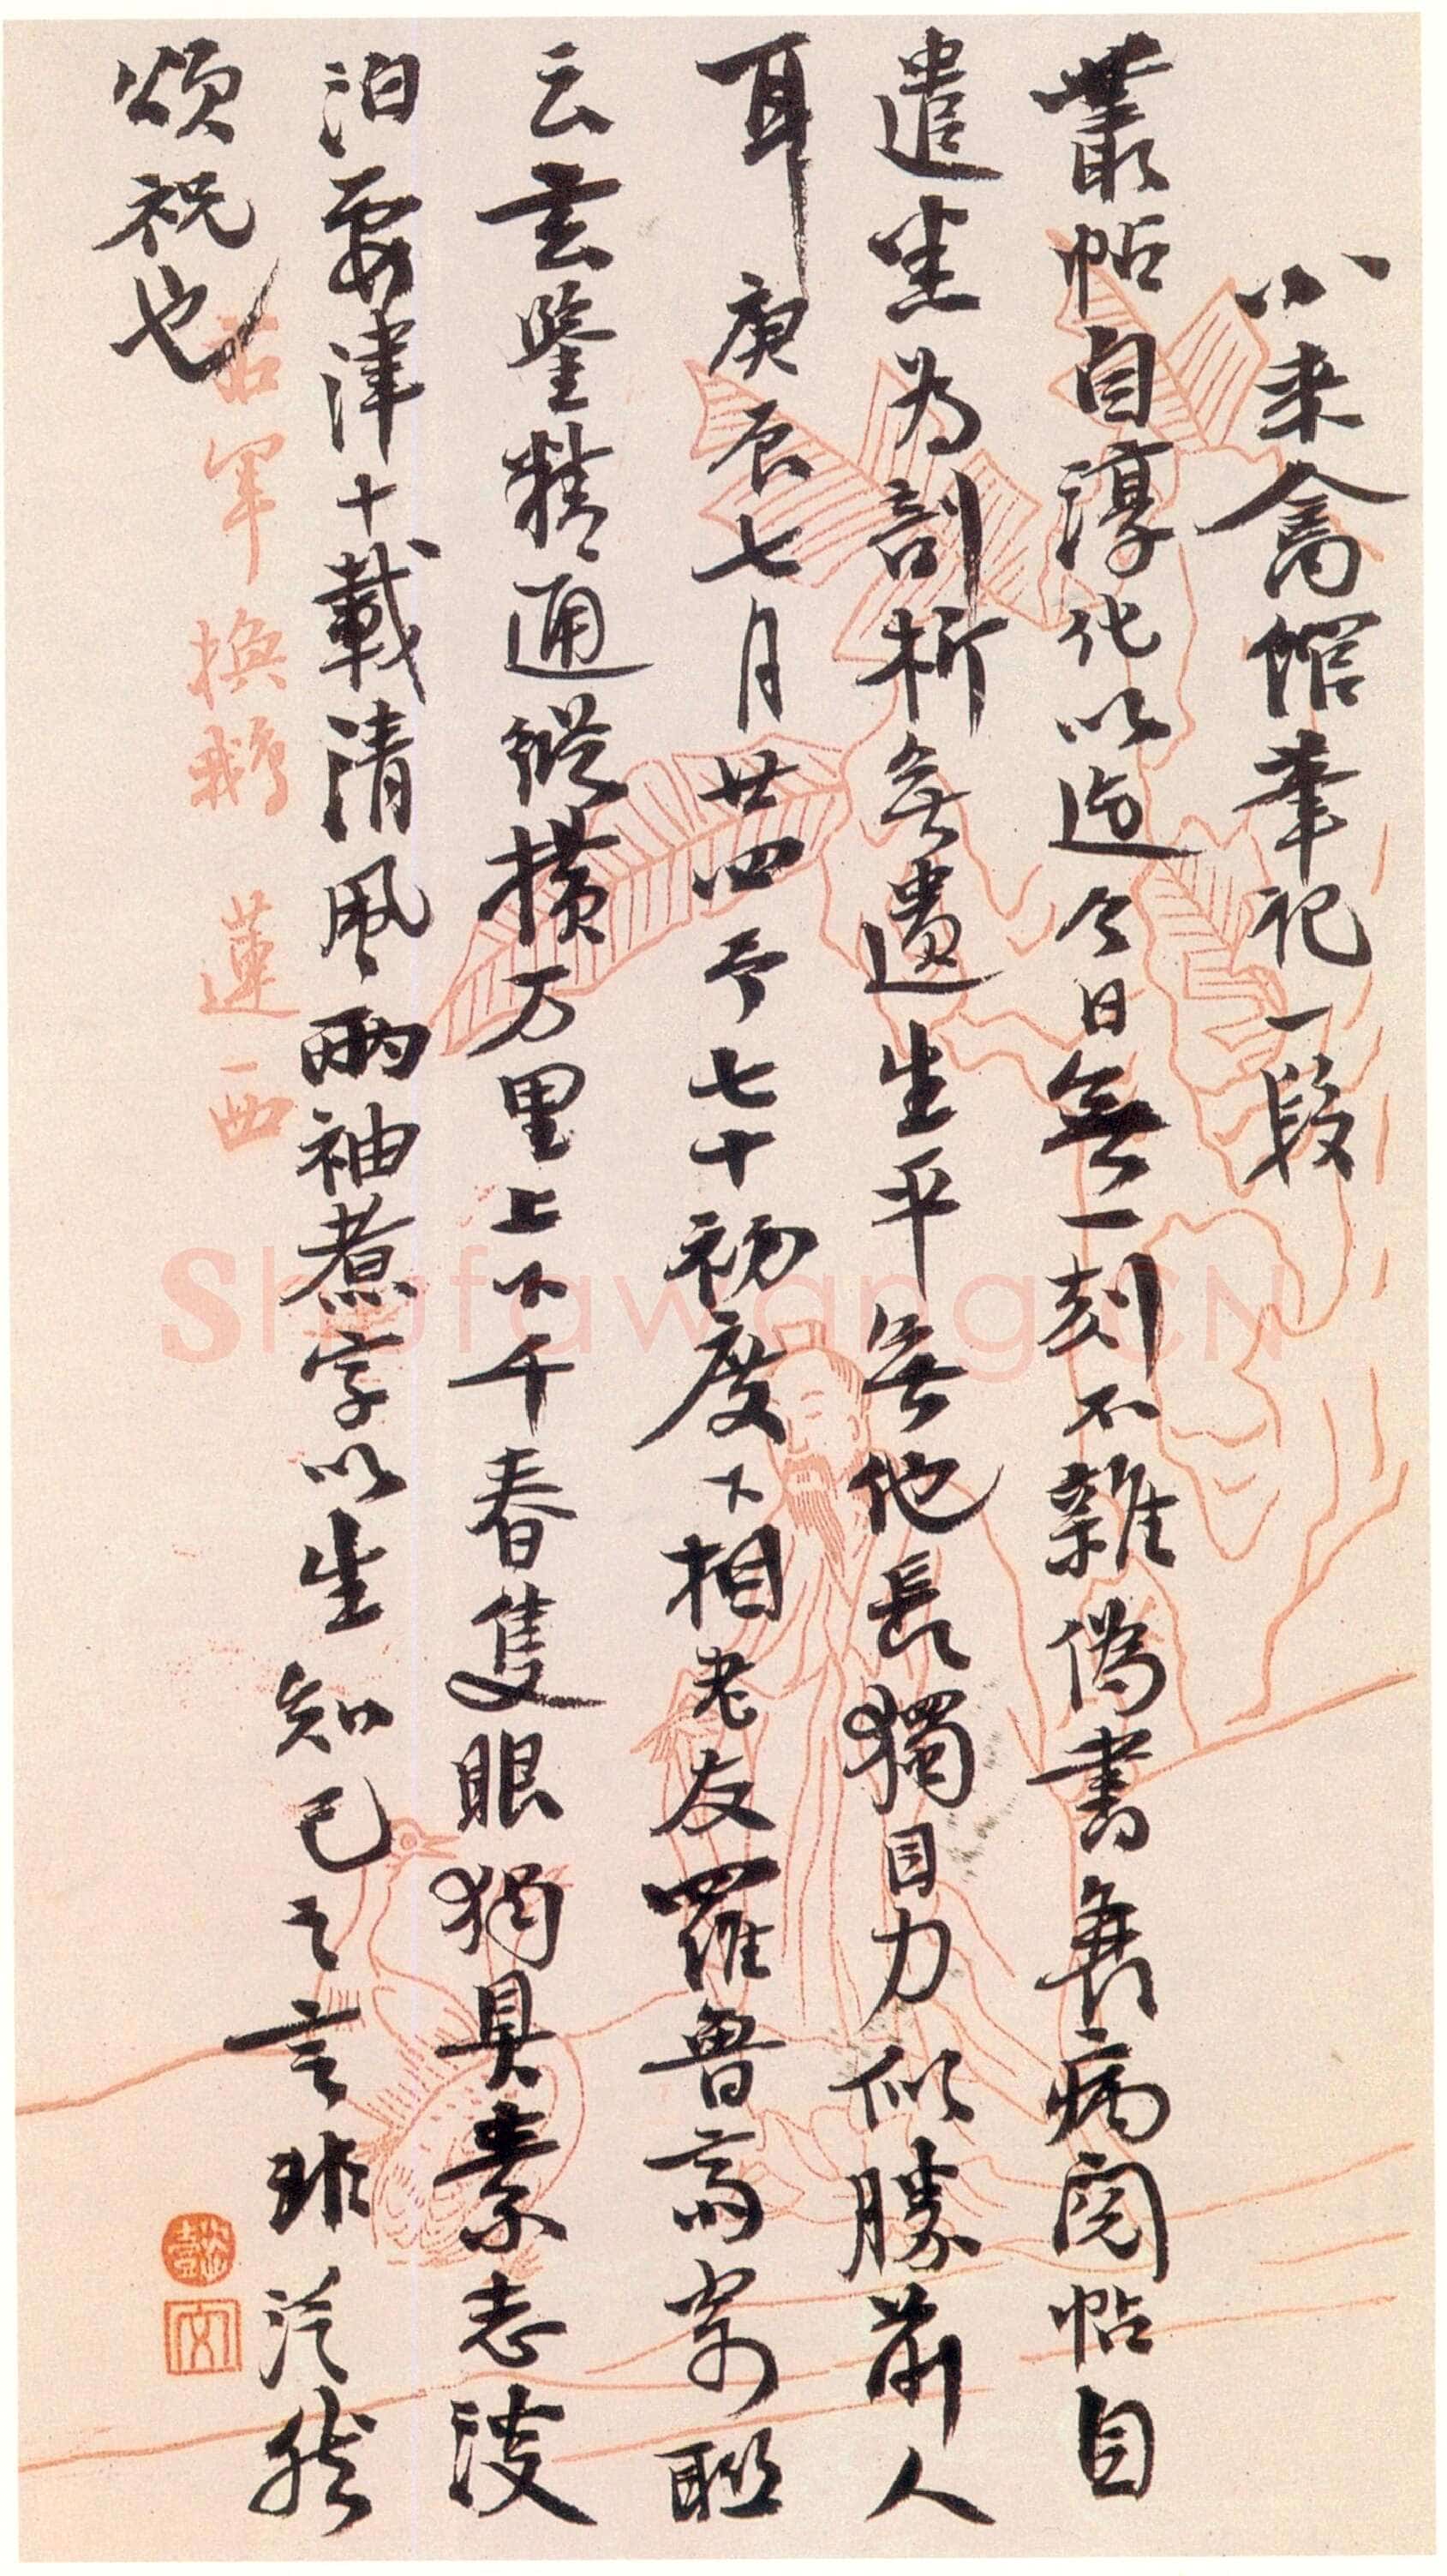 小来禽馆筆記一段
叢帖自淳化以迄今日無一刻不雜偽書衰病閱帖自
遣坐為剖析無遺生平無他長獨目力似勝前人
耳 庚辰七月廿四予七十初度下相老友羅魯斋寄聯
云玄鑒精通縱横万里上下千春隻眼独具素志淡
泊要津十載清风兩袖煮字以生知己之言非泛然
頌祝也
右軍換鵝 蓮西
Shufawang.CN